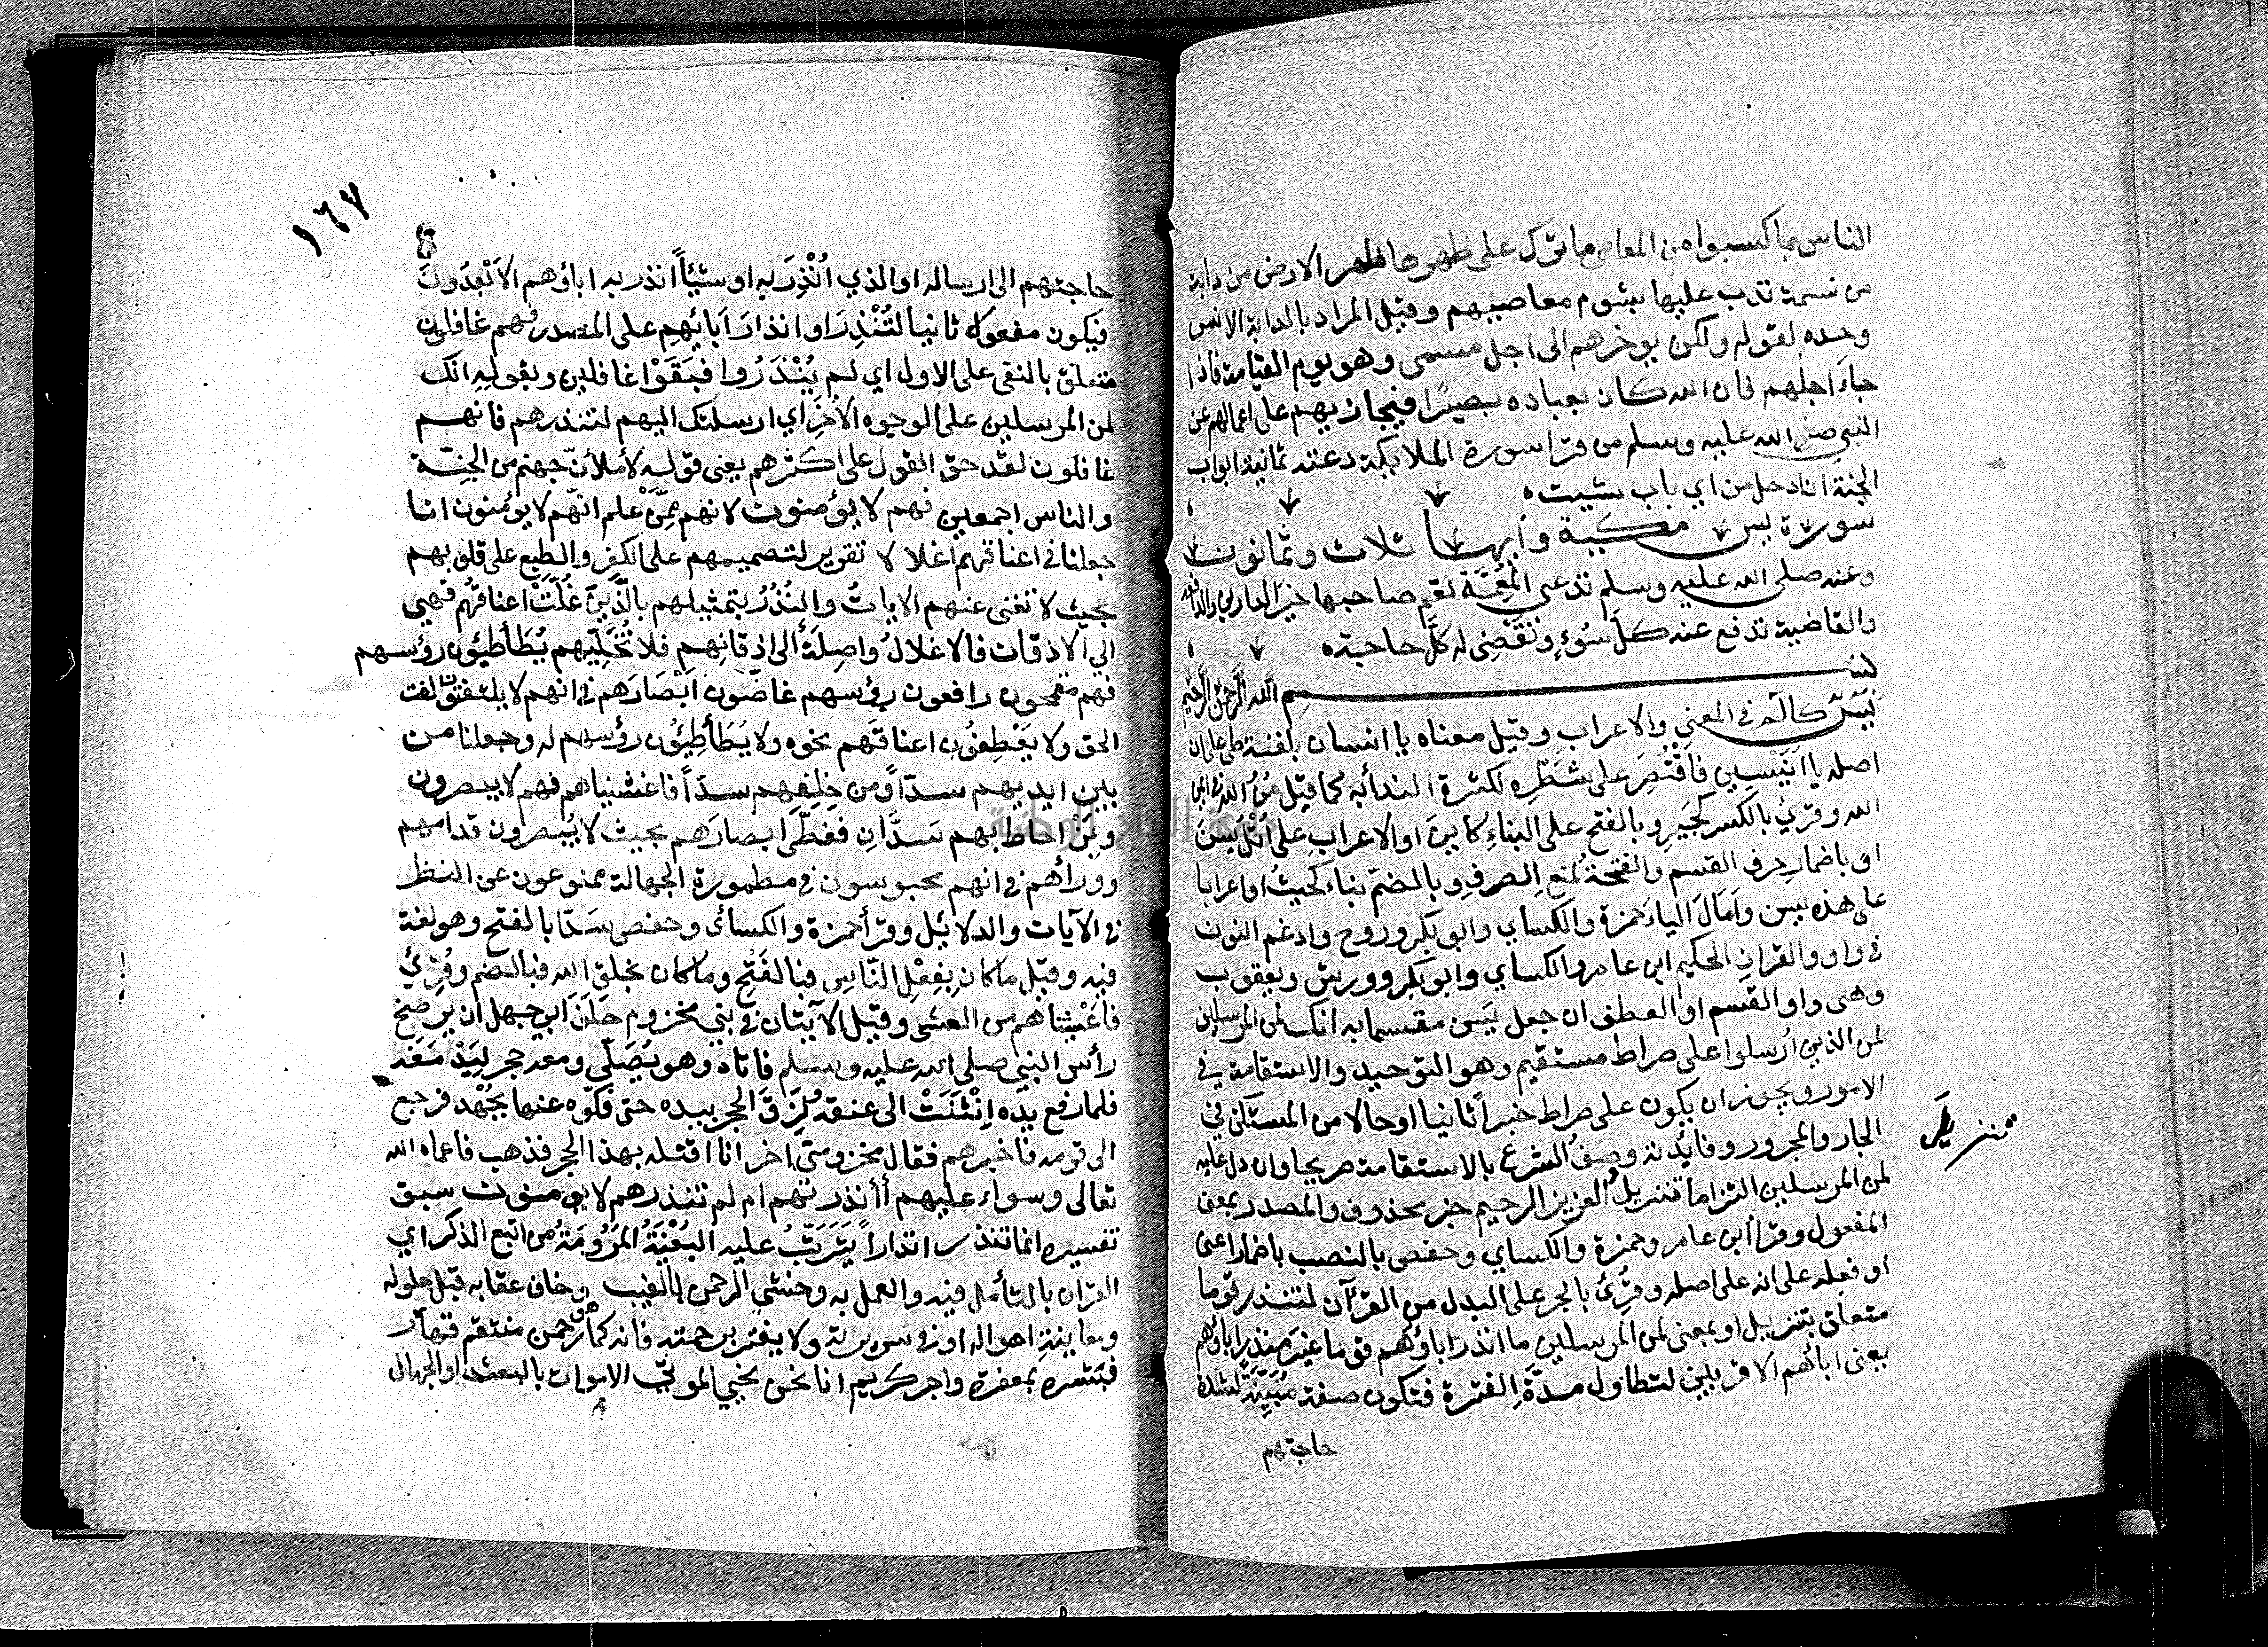 الناس بما كسبوا من المعاصي ما ترك على ظهرها ظهر الارض من دابة
من نسمة تدب عليها بشوم معاصيهم وقيل المراد بالدابة الانس
وحده لقوله ولكن يوخرهم الى اجل مسمى وهو يوم القيامة فاذا
جاءَ اجلهم فان الله كان بعباده بصيرًا فيجازيهم على اعمالهم عن
النبي صلى الله عليه وسلم من قرا سورة الملايكة دعته ثمانية ابواب
الجنة ان ادخل من اي باب شيت ه
سورة يس مكية وآيها ثلاث وثمانون
وعنه صلى الله عليه وسلم تدعى المُعِمَّة تعم صاحبها خير الدارين والدافعة
والقاضية تدفع عنه كلّ سُوءٍ وتَقضِى له كلَّ حاجة ه
بسم الله الرحمن الرحيم
يَسَ كالٓم في المعنى والاعراب وقيل معناه يا انسان بلغة طي على ان
اصله يا اُنَيْسِين فاقْتُصِرَ على شَطْرِه لكثرة الندأ به كما قيل مُنُ الله في ايمن
الله وقرئ بالكسر كجَيرِ وبالفتح على البناءِ كاينَ او الاعراب على اُتْلُ يَسَ
او باضمار حرف القسم والفتحة لمنع الصرف وبالضمّ بناء كحيثُ او اعرابا
على هذه يسن وَاَمَالَ الياءَ حمزة والكساي وابو بكر وروح وادغم النون
في واو والقران الحكيم ابن عامر والكساي وابو بكر وورش ويعقوب
وهى واو القسم او العطف ان جعل يَسَ مقسما به انك لمن المرسلين
لمن الذين اُرسلوا على صراط مستقيم وهو التوحيد والاستقامة في
الامور ويجوز ان يكون على صراط خبراً ثانيا او حالا من المستكن في
الجار والمجرور وفايُدته وصفُ الشرع بالاستقامة صريحا وان دل عليه
لمن المرسلين التزاما تنزيلُ العزيز الرحيم خبر محذوف والمصدر بمعنى
المفعول وقرأ أبن عامر وحمزة والكساي وحفص بالنصب باضمار اعنى
او فعله على انه على اصله وقُرِئَ بالجر على البدل من القرآن لتنذر قوما
متعلق بتنزيل او بمعنى لمن المرسلين ما انذر اباؤهم قوما غيرَ مُنذرٍ اباؤهم
يعنى ابائهم الاقربين لتطاول مدَّةِ الفترة فتكون صفة مُبَيِّنَةً لشدة
حاجتهم
تنزيل
١٦٧
حاجتهم الى ارساله او الذي اُنْذِرَ به او شيئاً انذر به اباؤهم الاَبْعَدُونَ
فيكون مفعولا ثانيا لتُنْذِرَ او انذارَ اَبائِهِم على المصدر فهم غافلون
متعلق بالنفى على الاول اي لم يُنْذَرُوا فبَقَوْا غافلين وبقوله انك
لمن المرسلين على الوجوه الاُخَرِ اي ارسلتك اليهم لتنذرهم فانهم
غافلون لقد حق القول على اكثرهم يعنى قوله لأملأنّ جهنم من الجنّة
والناس اجمعين فهم لا يؤمنون لانهم مِمَّنْ علم انّهم لا يؤمنون انا
جعلنا في اعناقهم اغلالا تقرير لتصميمهم على الكفر والطبع على قلوبهم
بحيث لا تغنى عنهم الاياتُ والنُذُرُ بتمثيلهم بالَّذِينَ غُلَّتْ اعناقُهُم فهي
الى الاذقان فالاغلالُ واصِلَةُ الى اذقانِهِم فلا تُخَلِّيهم يُطَأطِئون رؤسهم
فهم مقمحون رافعون رؤسهم غاضّون اَبْصَارَهم في انهم لا يلتفتون لفت
الحق ولا يَعْطِفُون اعناقَهم نحوه ولا يُطَأطِئُون رؤسهم له وجعلنا من
بين ايديهم سدّاً ومن خلفهم سدّاً فاغشيناهم فهم لا يبصرون
وبِمَنْ احاط بهم سَدَّانِ فغطَّى ابصارَهم بحيث لا يُبصرون قدامهم
وورأهم في انهم محبوسون في مطمورة الجهالة ممنوعون عن النظر
في الآيات والدلائل وقرأ حمزة والكسائى وحفص سَدّا بالفتح وهو لغة
فيه وقيل ما كان بفِعْلِ النّاسِ فبالفَتْح وما كان بخلق الله فبالضم وقُرِئَ
فاعَشيناهم من العشى وقيل الآيتان في بني مخزوم حَلَفَ ابو جهل ان يرضخ
رأس النبي صلى الله عليه وسلم فاتاه وهو يُصَلّي ومعه حجر لِيَدْمَغَه
فلما رفع يدَه اِنْثَنَتْ الى عنقه ولَزِقَ الحجر بيده حتى فكّوه عنها بجُهْد فرجع
الى قومه فاخبرهم فقال مخزومىّ اخر انا اقتله بهذا الحجر فذهب فاعماه الله
تعالى وسواء عليهم أأنذرتهم ام لم تنذرهم لا يومنون سبق
تفسيره انما تنذر انذاراً يَتَرَتَّبُ عليه البُغْيَةُ المَرُومَةُ من اتبع الذكر اي
القران بالتأمل فيه والعمل به وخشي الرحمن بالغيب وخاف عقابه قبل حلوله
ومعاينةِ اهواله او في سريرته ولا يغتر برحمته فانه كما هو رحمن منتقم قهار
فبشره بمغفرة واجر كريم انا نحن نحيي الموتى الاموات بالبعث او الجهال